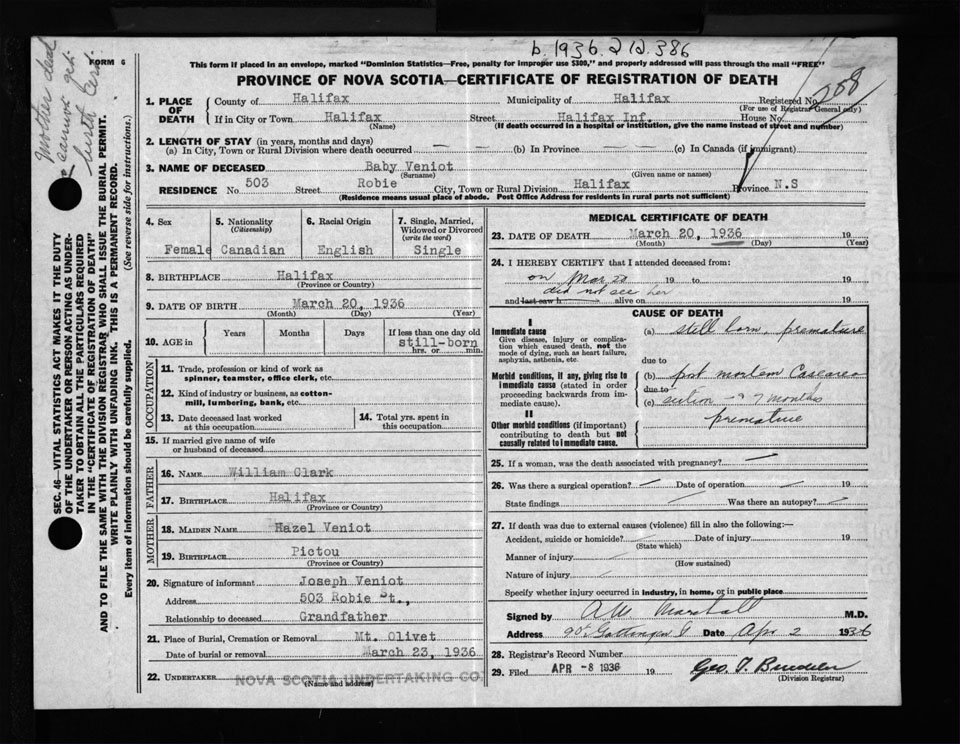 b. 1936. 2 12. 386
FORM 6
Mother dead
cannot get
birth Cert.
This form if placed in an envelope, marked "Dominion Statistics—Free, penalty for improper use $300," and properly addressed will pass through the mail "FREE"
PROVINCE OF NOVA SCOTIA—CERTIFICATE OF REGISTRATION OF DEATH
SEC. 46—VITAL STATISTICS ACT MAKES IT THE DUTY
OF THE UNDERTAKER OR PERSON ACTING AS UNDER-
TAKER TO OBTAIN ALL THE PARTICULARS REQUIRED
IN THE "CERTIFICATE OF REGISTRATION OF DEATH"
AND TO FILE THE SAME WITH THE DIVISION REGISTRAR WHO SHALL ISSUE THE BURIAL PERMIT.
WRITE PLAINLY WITH UNFADING INK. THIS IS A PERMANENT RECORD.
Every item of information should be carefully supplied. (See reverse side for instructions.)
1. PLACE OF DEATH
County of Halifax Municipality of Halifax Registered No. 208
(For use of Registrar General only)
If in City or Town Halifax Street Halifax Inf. House No.
(Name) (If death occurred in a hospital or institution, give the name instead of street and number)
2. LENGTH OF STAY (in years, months and days)
(a) In City, Town or Rural Division where death occurred — — (b) In Province — — (c) In Canada (if immigrant)
3. NAME OF DECEASED Baby Veniot
(Surname) (Given name or names)
RESIDENCE No. 503 Street Robie City, Town or Rural Division Halifax Province N.S
(Residence means usual place of abode. Post Office Address for residents in rural parts not sufficient)
4. Sex 5. Nationality (Citizenship) 6. Racial Origin 7. Single, Married, Widowed or Divorced (write the word)
Female Canadian English Single
8. BIRTHPLACE Halifax
(Province or Country)
9. DATE OF BIRTH March 20, 1936
(Month) (Day) (Year)
10. AGE in Years Months Days If less than one day old
still-born
hrs. or min.
OCCUPATION
11. Trade, profession or kind of work as
spinner, teamster, office clerk, etc.
12. Kind of industry or business, as cotton-
mill, lumbering, bank, etc.
13. Date deceased last worked
at this occupation
14. Total yrs. spent in
this occupation
15. If married give name of wife
or husband of deceased
FATHER
16. NAME William Clark
17. BIRTHPLACE Halifax
(Province or Country)
MOTHER
18. MAIDEN NAME Hazel Veniot
19. BIRTHPLACE Pictou
(Province or Country)
20. Signature of informant Joseph Veniot
Address 503 Robie St.,
Relationship to deceased Grandfather
21. Place of Burial, Cremation or Removal Mt. Olivet
Date of burial or removal March 23, 1936
22. UNDERTAKER NOVA SCOTIA UNDERTAKING CO.
(Name and address)
MEDICAL CERTIFICATE OF DEATH
23. DATE OF DEATH March 20, 1936 19
(Month) (Day) (Year)
24. I HEREBY CERTIFY that I attended deceased from:
on Mar 20 19 to 19
did not see her
and last saw h alive on 19
CAUSE OF DEATH
I
Immediate cause
Give disease, injury or complica-
tion which caused death, not the
mode of dying, such as heart failure,
asphyxia, asthenia, etc.
(a) still born, premature
due to
Morbid conditions, if any, giving rise to
immediate cause (stated in order
proceeding backwards from im-
mediate cause).
(b) post mortem Caesarea
due to
(c) section - 7 months
premature
II
Other morbid conditions (if important)
contributing to death but not
causally related to immediate cause.
25. If a woman, was the death associated with pregnancy?
26. Was there a surgical operation? Date of operation 19
State findings Was there an autopsy?
27. If death was due to external causes (violence) fill in also the following:—
Accident, suicide or homicide? Date of injury 19
(State which)
Manner of injury
(How sustained)
Nature of injury
Specify whether injury occurred in industry, in home, or in public place
Signed by A.W. Marshall M.D.
Address 90 Gottingen St Date Apr 2 1936
28. Registrar's Record Number
29. Filed APR -8 1936 19
(Division Registrar)